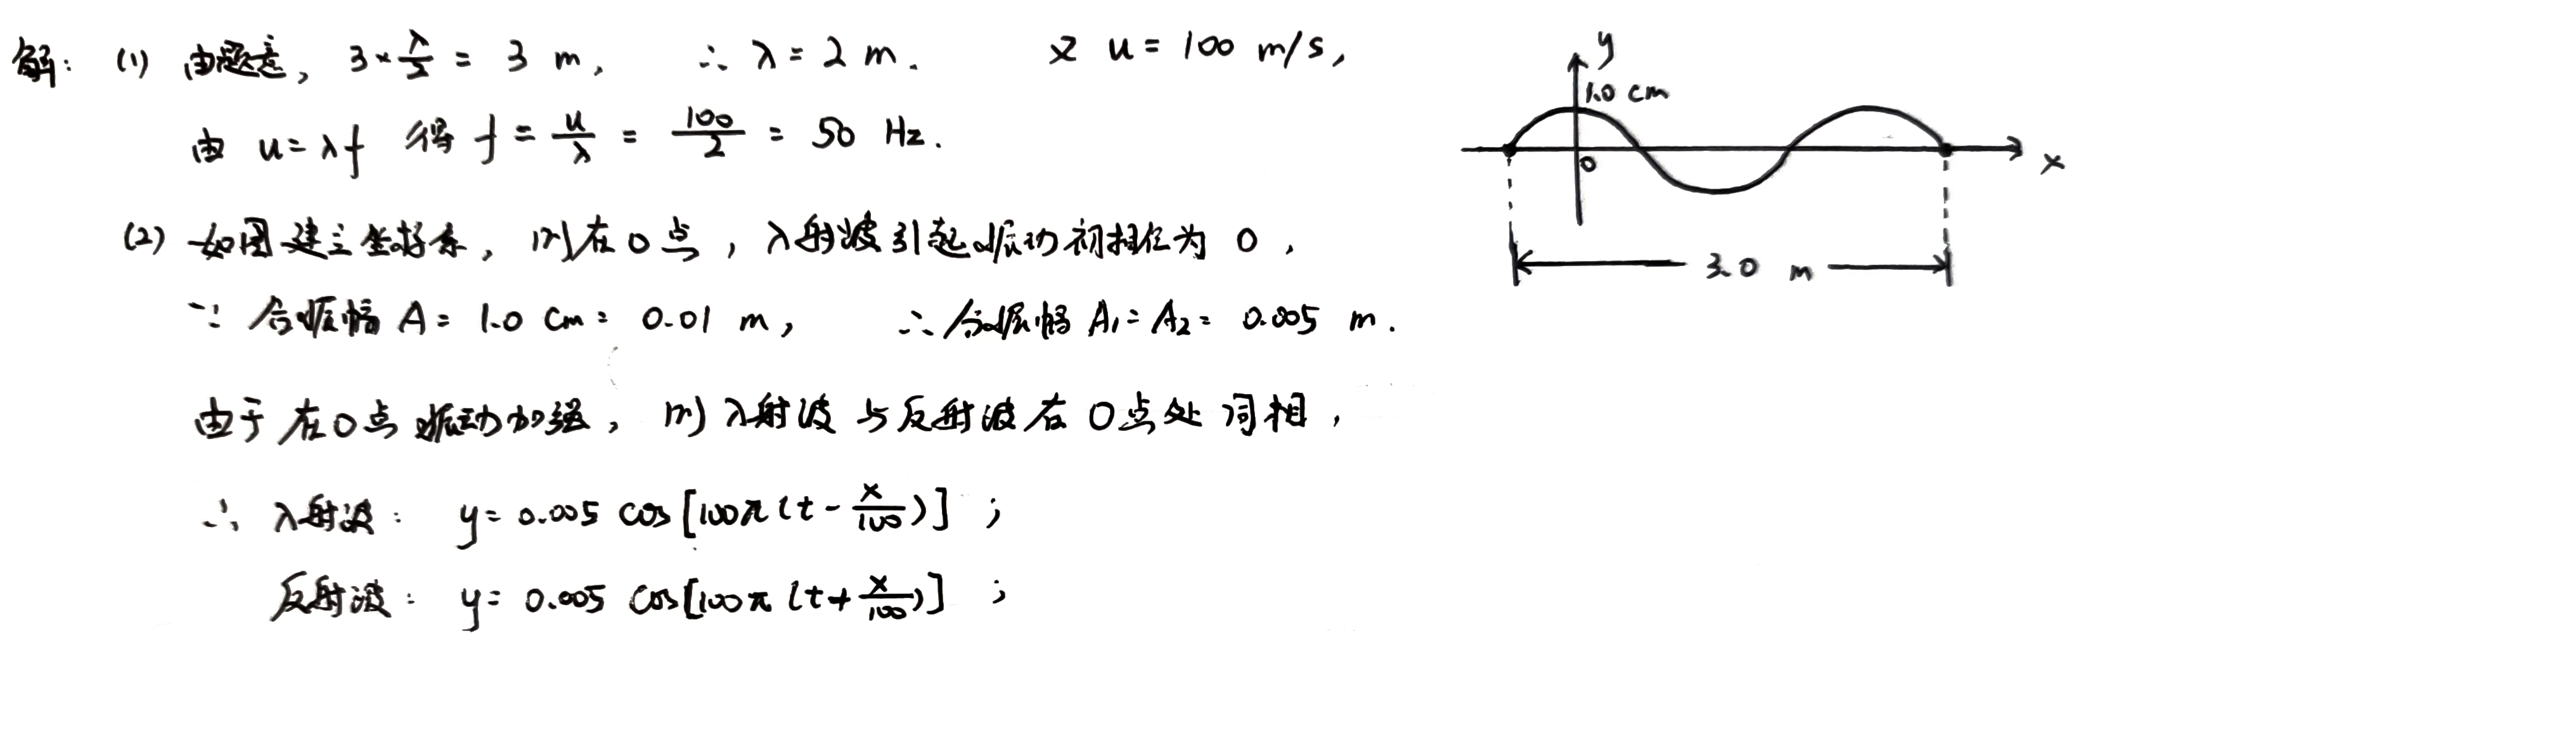 解: (1) 由题意, 3×λ/2 = 3 m, ∴ λ = 2 m. 又 u = 100 m/s,
由 u = λf 得 f = u/λ = 100/2 = 50 Hz.
(2) 如图建立坐标系, 则在O点, 入射波引起振动初相位为 0,
∵ 合振幅 A = 1.0 cm = 0.01 m, ∴ 分振幅 A₁ = A₂ = 0.005 m.
由于在O点振动加强, 则入射波与反射波在O点处同相,
∴ 入射波: y = 0.005 cos[100π(t - x/100)] ;
反射波: y = 0.005 cos[100π(t + x/100)] ;
y
1.0 cm
0
x
3.0 m